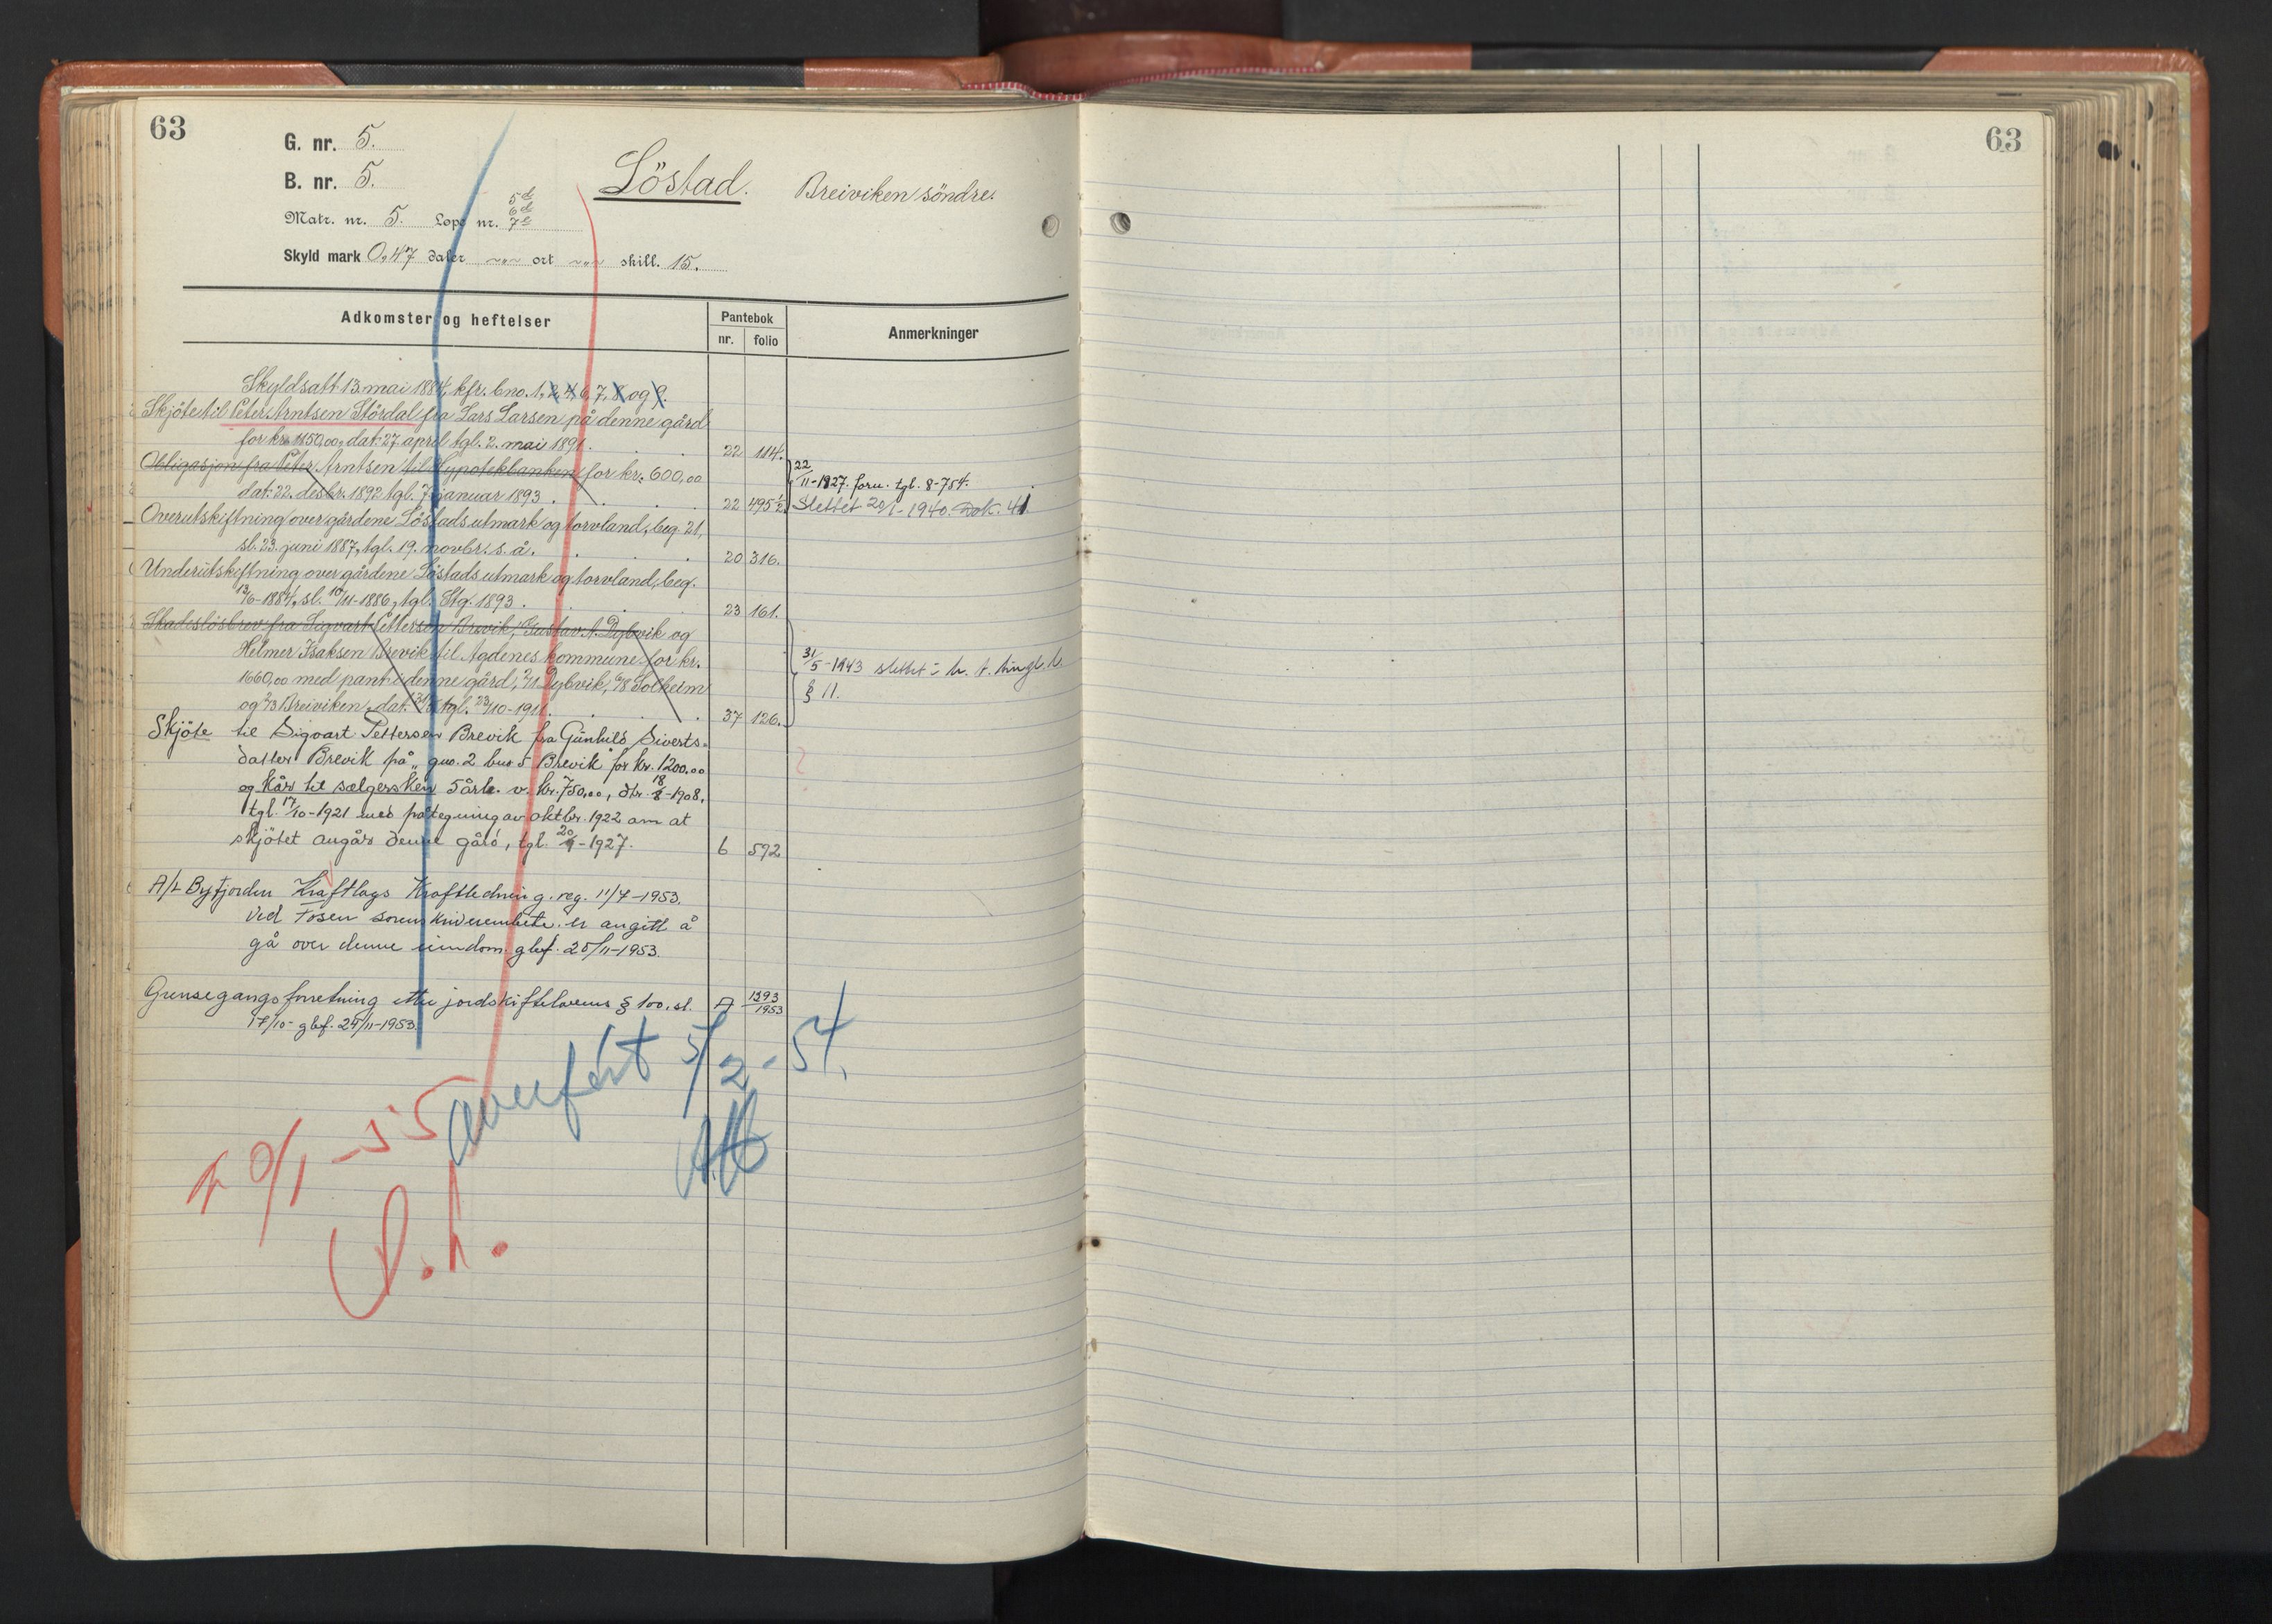 63
G. nr. 5.
B. nr. 5.
Löstad. Breiviken söndre.
5 d
6 d
Matr. nr. 5. Løpe nr. 7 e
Skyld mark 0,47 daler -"- ort -"- skill. 15.
Adkomster og heftelser
Pantebok
nr. folio
Anmerkninger
Skyldsatt 13 mai 1884, kfr. bno. 1, 2, 4, 6, 7, 8 og 9.
Skjöte til Peter Arntsen Stördal fra Lars Larsen på denne gård
for kr. 1850,00, dat. 27. april tgl. 2. mai 1891. 22 114.
Obligasjon fra Peter Arntsen til Hypotekbanken for kr. 600,00
dat. 22. desbr. 1892 tgl. 7. januar 1893. 22 495½
22/11-1927. forn. tgl. 8-754.
Slettet 20/1-1940. Dok. 41
Overutskiftning over gårdene Löstads utmark og torvland, beg. 21,
sl. 23. juni 1887, tgl. 19. novbr. s. å. 20 316.
Underutskiftning over gårdene Löstads utmark og torvland, beg.
12/6-1884, sl. 10/11-1886, tgl. Stg. 1893. 23 161.
Skadeslösbrev fra Sigvart Pettersen Brevik, Gustav A. Dybvik og
Helmer Isaksen Brevik til Agdenes kommune for kr.
1660,00 med pant i denne gård, 2/1 Dybvik, 6/8 Solheim
og 2/3 Breiviken, dat. tgl. 23/10-1911. 37 126.
31/5-1943 slettet
§ 11.
Skjöte til Sigvart Pettersen Brevik fra Gunhild Siverts-
datter Brevik på "gno. 2 bno 5 Brevik" for kr. 1200.00
og kår til sælgersken 5 årl. v. kr. 750,00, dat. 18/8-1908,
tgl. 17/10-1921 med påtegning av oktbr. 1922 om at
skjötet angår denne gård, tgl. 20/9-1927. 6 592
A/L Byfjorden Kraftlags Kraftledning. reg. 11/7-1953.
ved Fosen sorenskriverembete er angitt å
gå over denne eiendom. gbf. 25/11-1953.
Grensegangsforretning etter jordskiftelovens § 100. sl. A 1393/1953
17/10- gbf. 25/11-1953.
overfört 5/2-54.
20/1-55
63